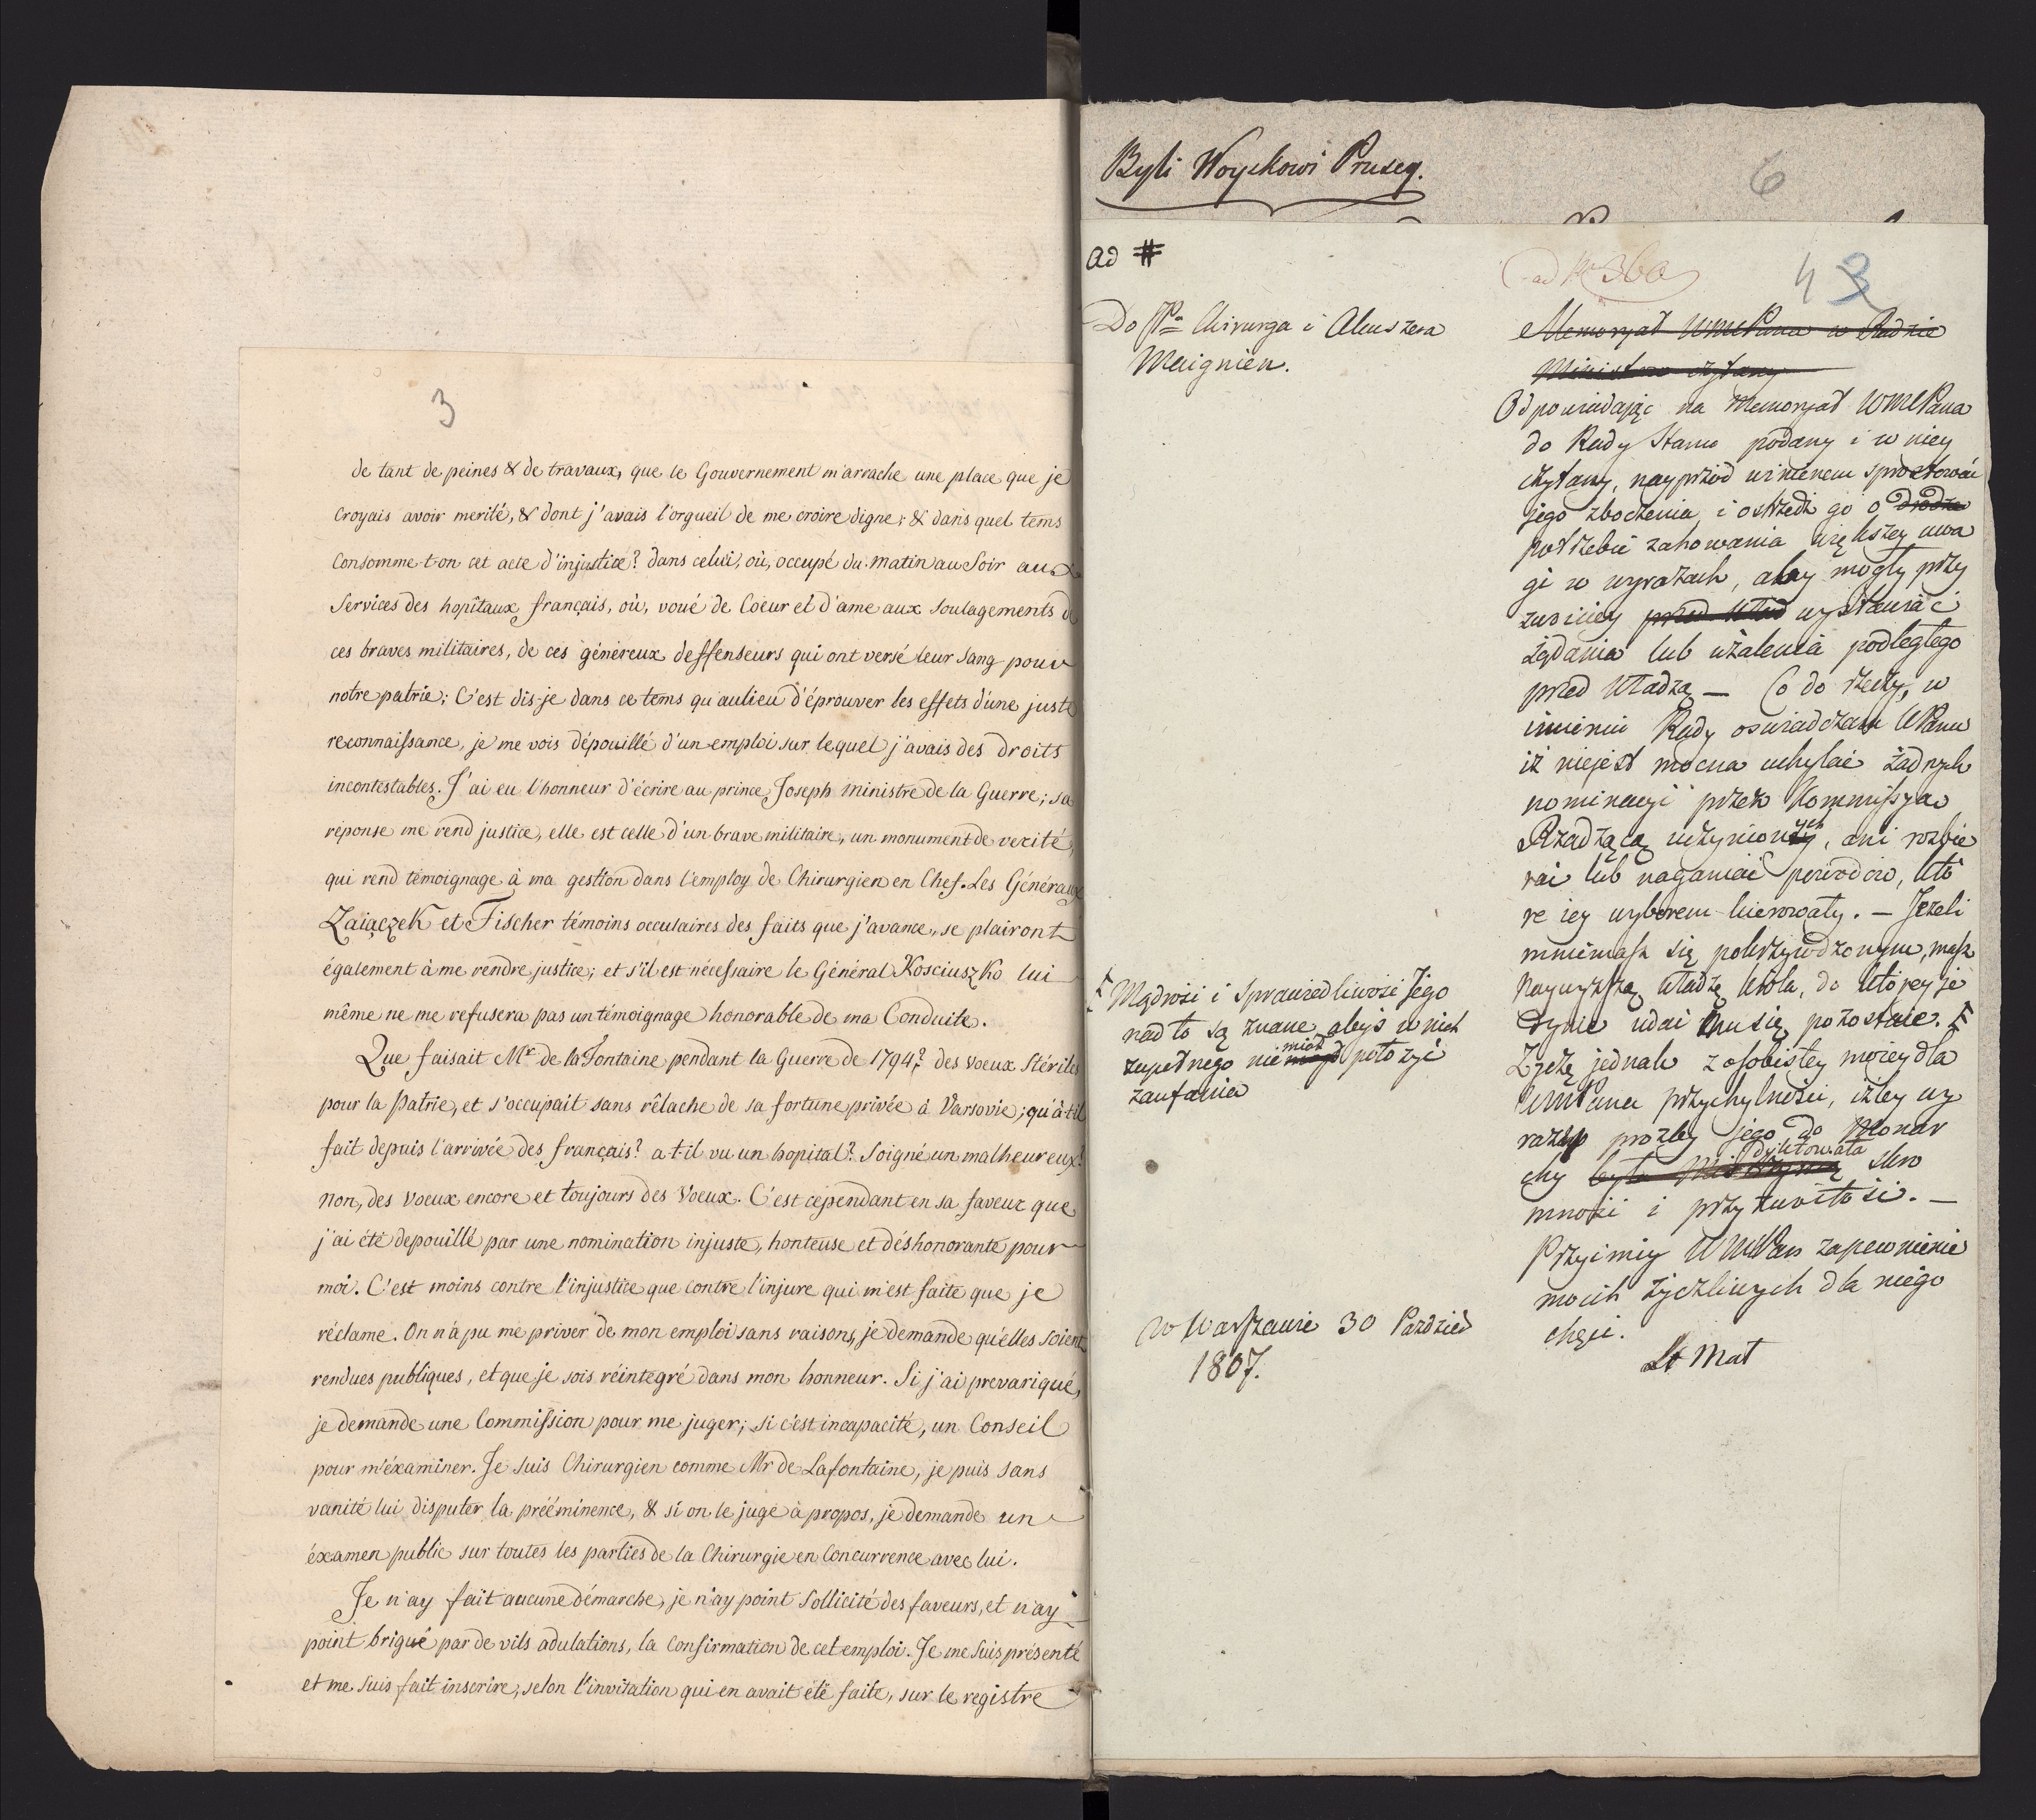 3
de tant de peines & de travaux, que le Gouvernement m'arrache une place que je
croyais avoir merité, & dont j'avais l'orgueil de me croire digne; & dans quel tems
consomme-t-on cet acte d'injustice? dans celui, où, occupé du matin au Soir aux
Services des hopitaux français, où, voué de Coeur et d'ame aux soulagements de
ces braves militaires, de ces généreux deffenseurs qui ont versé leur Sang pour
notre patrie; C'est dis-je dans ce tems qu'aulieu d'éprouver les effets d'une juste
reconnaissance, je me vois dépouillé d'un emploi sur lequel j'avais des droits
incontestables. J'ai eu l'honneur d'écrire au prince Joseph ministre de la Guerre; sa
réponse me rend justice, elle est celle d'un brave militaire, un monument de verité,
qui rend témoignage à ma gestion dans l'employ de Chirurgien en Chef. Les Généraux
Zaiączek et Fischer témoins occulaires des faits que j'avance, se plairont
également à me rendre justice; et s'il est nécessaire le Général Kosciuszko lui
même ne me refusera pas un témoignage honorable de ma Conduite.
Que faisait Mr de la Fontaine pendant la Guerre de 1794? des voeux Stériles
pour la Patrie, et s'occupait sans rêlache de sa fortune privée à Varsovie; qu'à-t-il
fait depuis l'arrivée des français? a-t-il vu un hopital? Soigné un malheureux?
non, des voeux encore et toujours des Voeux. C'est cependant en sa faveur que
j'ai été depouillé par une nomination injuste, honteuse et déshonorante pour
moi. C'est moins contre l'injustice que contre l'injure qui m'est faite que je
réclame. On n'a pu me priver de mon emploi sans raisons, je demande qu'elles soient
rendues publiques, et que je sois réintegré dans mon honneur. Si j'ai prevariqué,
je demande une Commission pour me juger; si c'est incapacité, un Conseil
pour m'éxaminer. Je suis Chirurgien comme Mr de Lafontaine, je puis sans
vanité lui disputer la prééminence, & si on le juge à propos, je demande un
éxamen public sur toutes les parties de la Chirurgie en Concurrence avec lui.
Je n'ay fait aucune démarche, je n'ay point sollicité des faveurs, et n'ay
point brigué par de vils adulations, la Confirmation de cet emploi. Je me suis présenté
et me suis fait inscrire, selon l'invitation qui en avait été faite, sur le registre
Byli Woyskowi Pruscy.
6
ad #
ad No 360
43
Do JPa Chirurga i Akuszera
Meignien.
Memoryał WMcPana w Radzie
Ministrow czytany
Odpowiadając na Memoryał WMcPana
do Rady Stanu podany i w niey
czytany, nayprzód winienem sprostować
jego zboczenia, i ostrzedz go o
potrzebie zahowania większey uwa
gi w wyrazach, aby mogły przy
zwoiciey wystawiać
żądania lub użalenia podległego
przed Władzą — Co do rzeczy, w
imieniu Rady oswiadczam WPanu
iż niejest mocna uchylać żadnych
nominacyi przez Kommissyą
Rządzącą uczynionych, ani rozbie
rać lub naganiać powodow, któ
re iey wyborem kierowały. — Jeżeli
mniemasz się pokrzywdzonym, masz
Naywyższą władzę Króla, do którey je
dynie udać się pozostaie. #
# Mądrość i Sprawiedliwość Jego
nadto są znane abyś w nich
zupełnego nie miał położyć
zaufania
Zyczę jednak z osobistey mojey dla
WMPana przychylności, iżby wy
razy prozby jego do Monar
chy dyktowała skro
mność i przyzwoitość. —
Przyimiy WMcPan zapewnienie
moich życzliwych dla niego
chęci.
w Warszawie 30 Pazdzier
1807.
St Mał